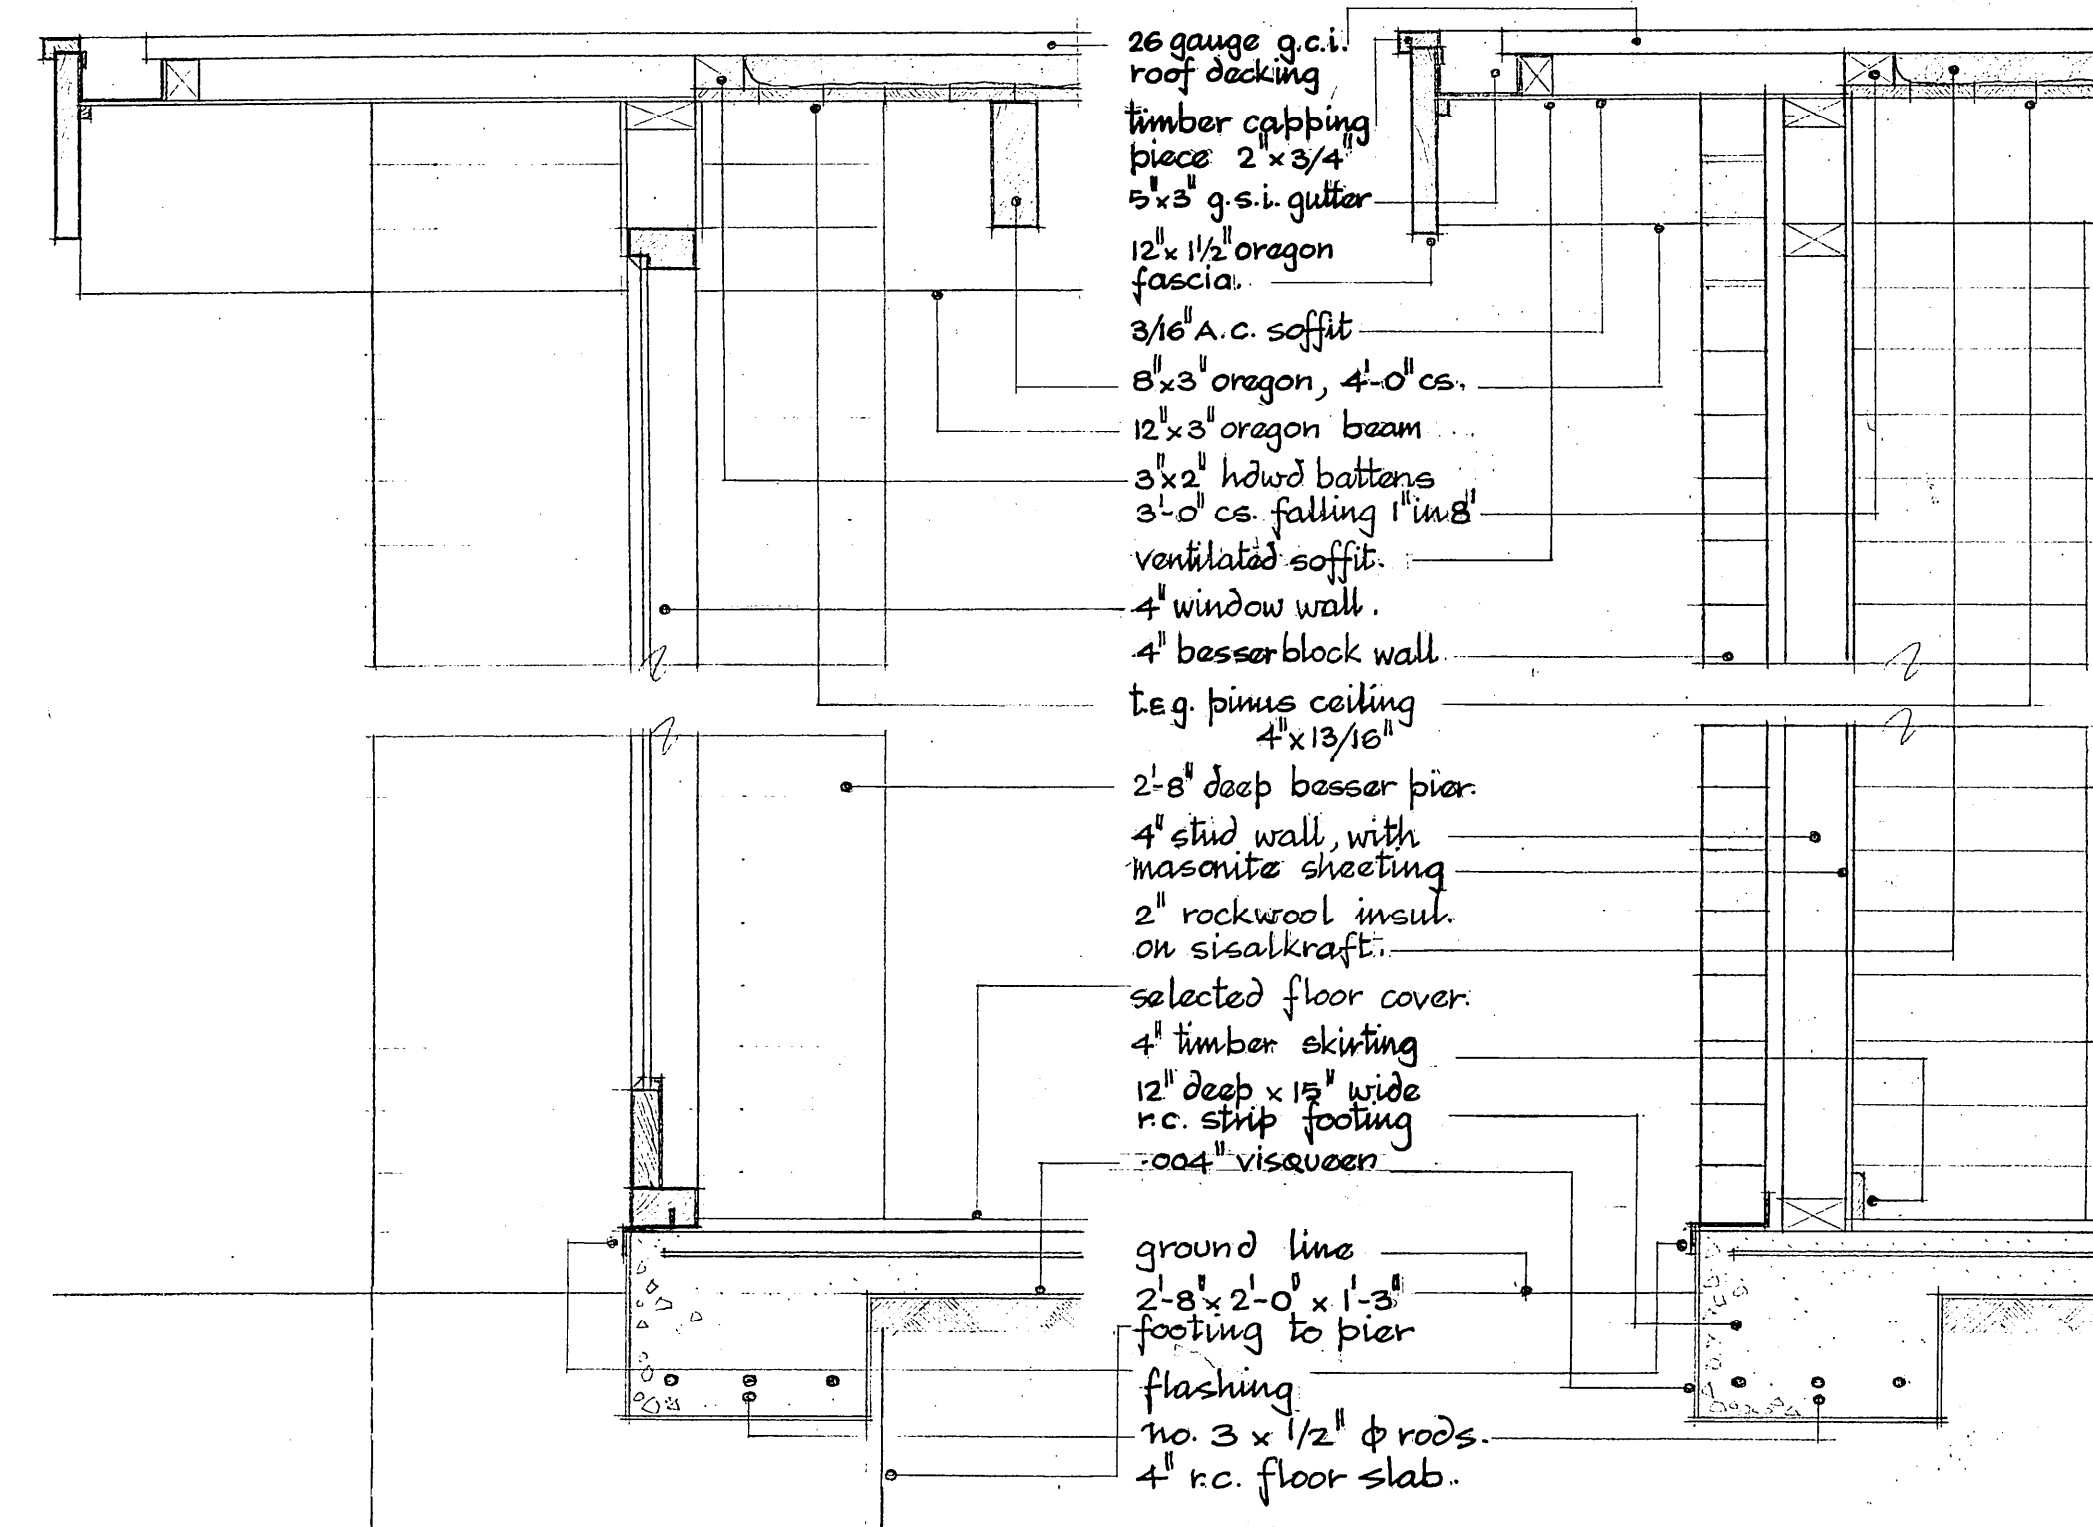 26 gauge g.c.i.
roof decking
timber capping
piece 2"x 3/4"
5"x3" g.s.i. gutter
12"x 1½" oregon
fascia.
3/16" A.C. soffit
8"x3" oregon, 4'-0" cs.
12"x3" oregon beam
3"x2" hdwd battens
3'-0" cs. falling 1" in 8'
ventilated soffit.
4" window wall.
4" besser block wall
t.&g. pinus ceiling
4"x 13/16"
2'-8" deep besser pier.
4" stud wall, with
masonite sheeting
2" rockwool insul.
on sisalkraft.
selected floor cover.
4" timber skirting
12" deep x 15" wide
r.c. strip footing
.004" visqueen
ground line
2'-8" x 2'-0" x 1'-3"
footing to pier
flashing
no. 3 x 1/2" ϕ rods.
4" r.c. floor slab.